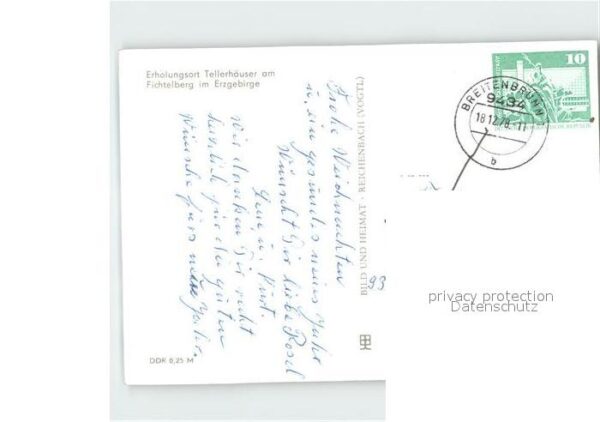 Erholungsort Tellerhäuser am
Fichtelberg im Erzgebirge
Frohe Weihnachten
u. ein gesundes neues Jahr
Wünscht Dir liebe Rosel
u.
Wir danken Dir recht
herzlich für die guten
Wünsche fürs neue Jahr.
DDR 0,25 M
BILD UND HEIMAT · REICHENBACH (VOGTL)
93
10
BREITENBRUNN
9434
18.12.78-11
b
privacy protection
Datenschutz